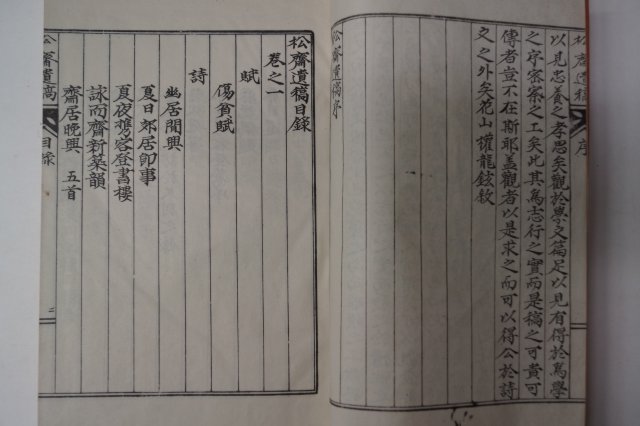 松齋遺稿 序
以見忠養之孝思矣觀於祭文篇足以見有得於爲學
之序密察之工矣此其爲志行之實而是稿之可貴可
傳者豈不在斯耶盖觀者以是求之而可以得公於詩
文之外矣花山權龍鉉敍
松齋遺稿序
松齋遺稿目錄
卷之一
賦
傷貧賦
詩
幽居閒興
夏日郊居卽事
夏夜携客登書樓
詠而齋新築韻
齋居晩興 五首
松齋遺稿 目錄 二